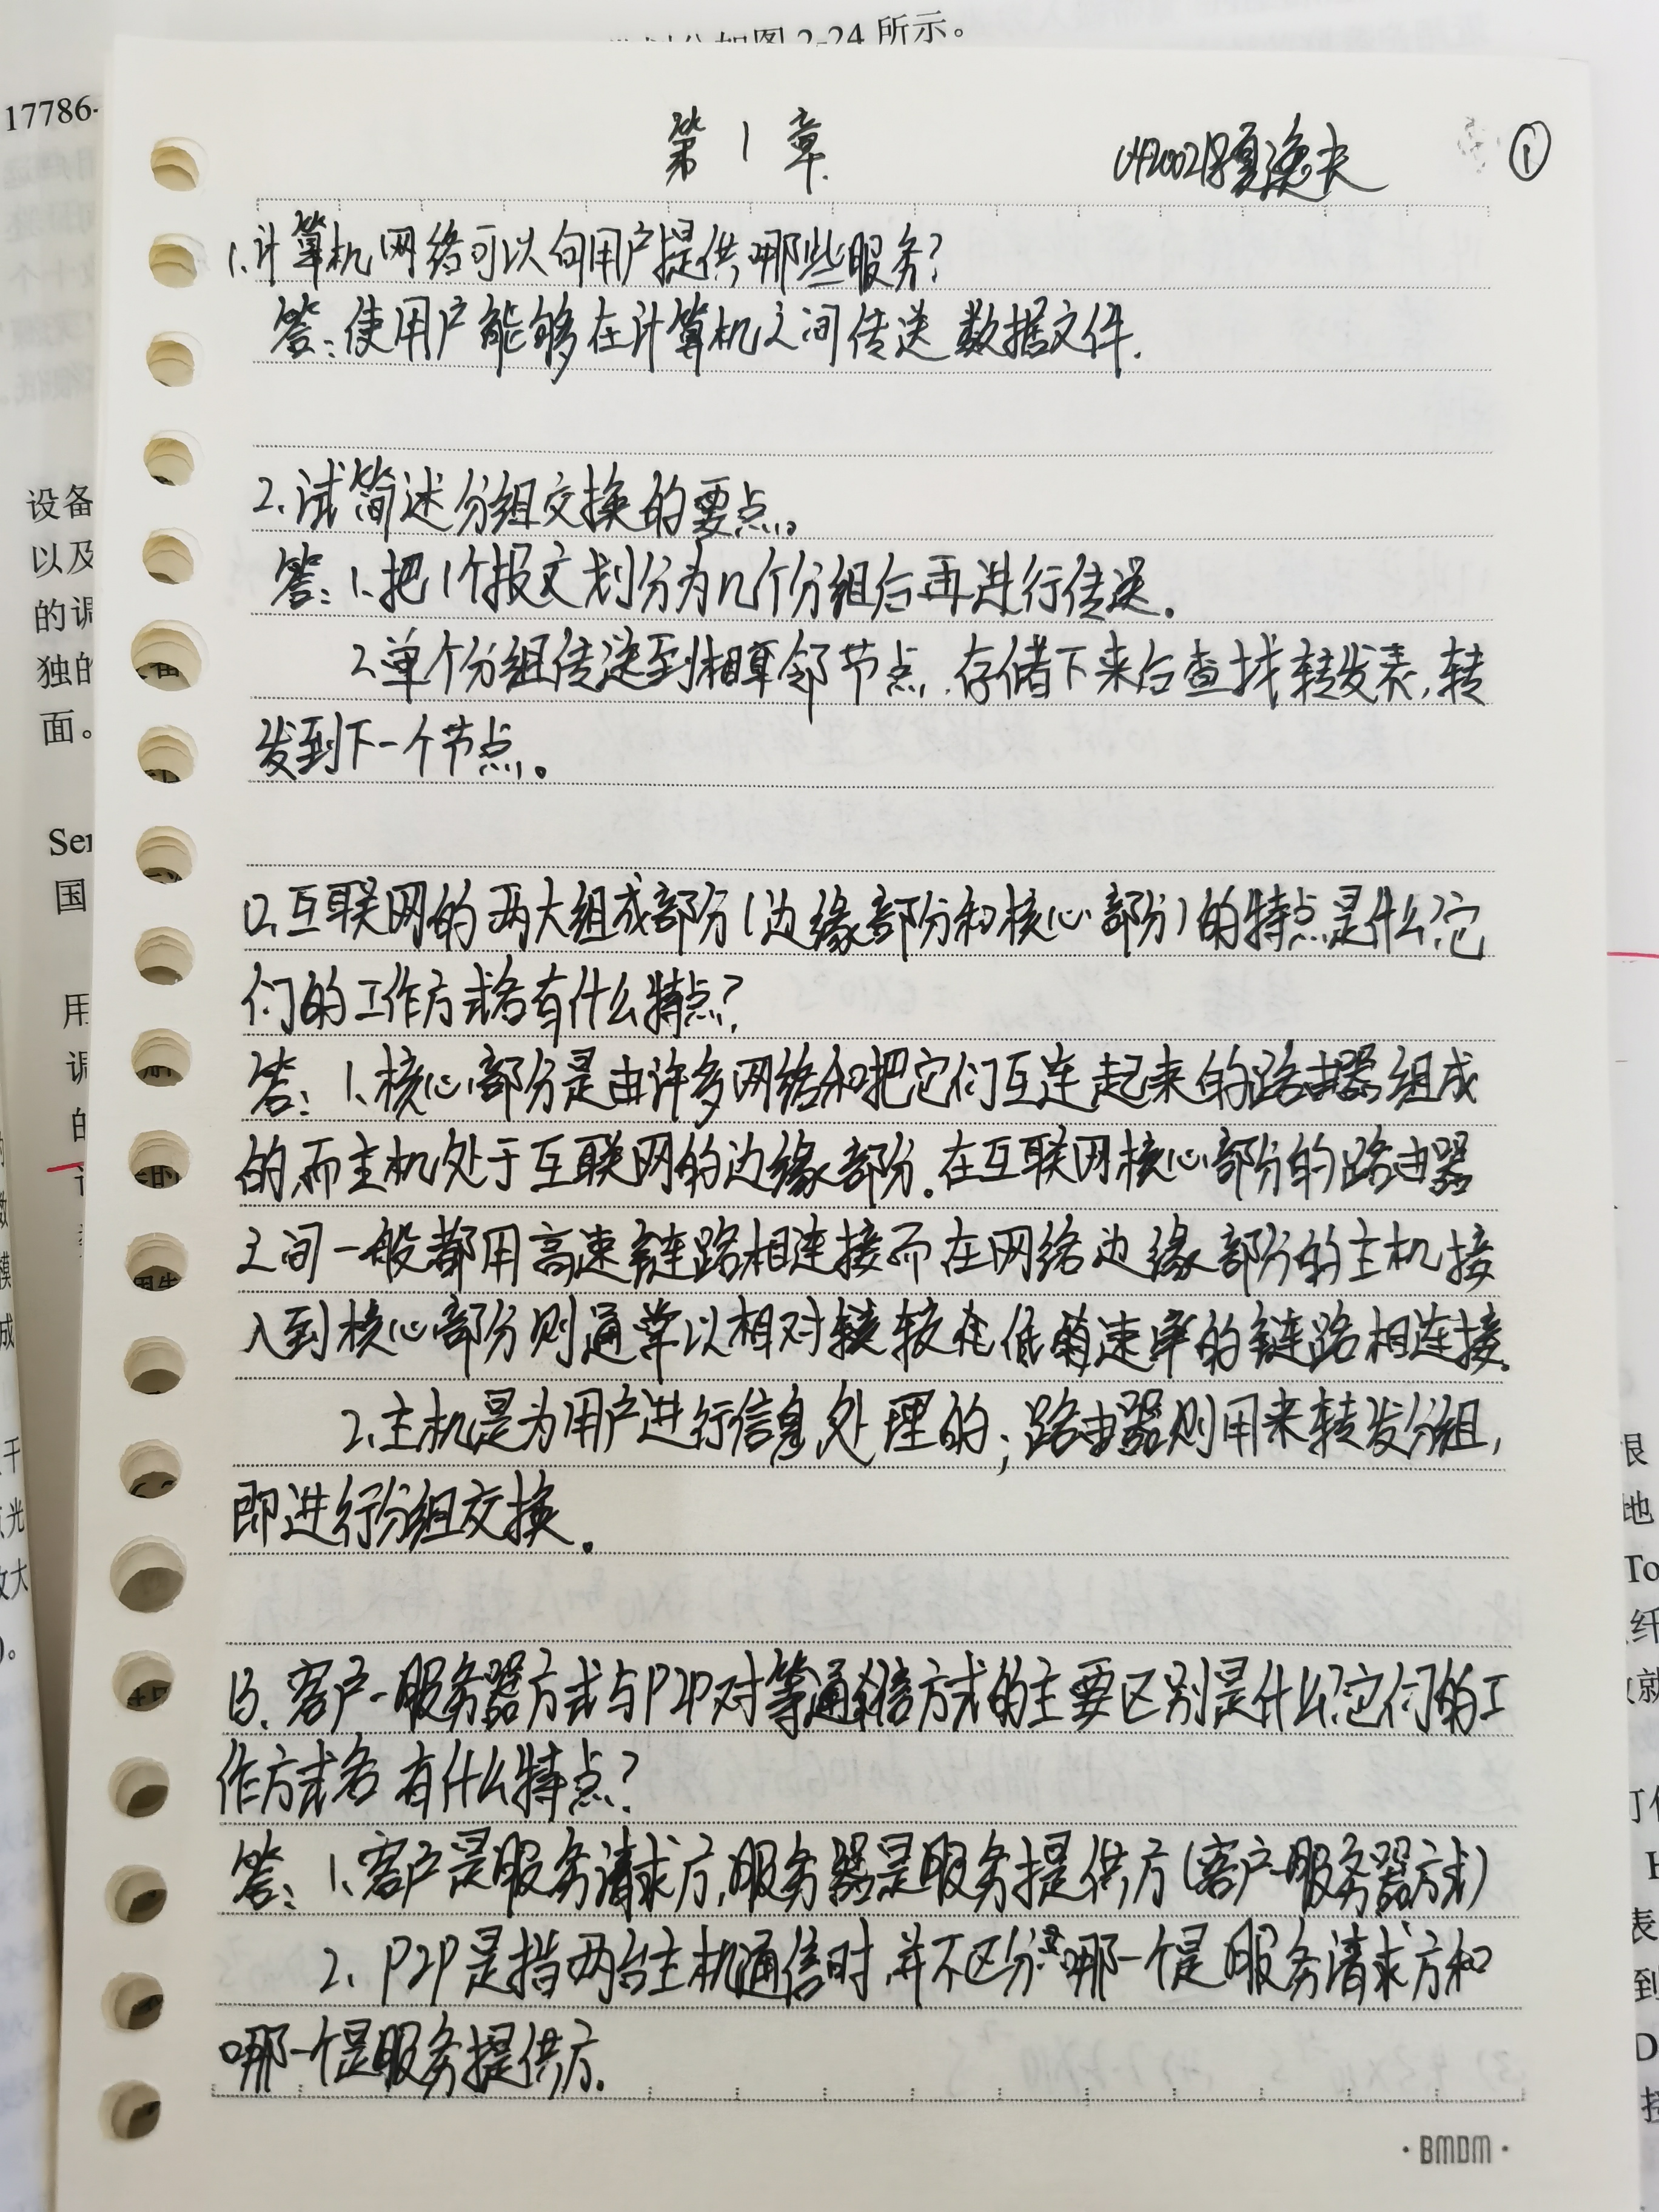 划分如图 2-24 所示。
17786-
第1章
①
1.计算机网络可以向用户提供哪些服务?
答:使用户能够在计算机之间传送数据文件.
2.试简述分组交换的要点。
答:1.把1个报文划分为几个分组后再进行传送。
2.单个分组传送到相邻节点,存储下来后查找转发表,转
发到下一个节点。
12.互联网的两大组成部分(边缘部分和核心部分)的特点是什么?它
们的工作方式各有什么特点?
答:1.核心部分是由许多网络和把它们互连起来的路由器组成
的,而主机处于互联网的边缘部分.在互联网核心部分的路由器
之间一般都用高速链路相连接而在网络边缘部分的主机接
入到核心部分则通常以相对较低的速率的链路相连接.
2.主机是为用户进行信息处理的;路由器则用来转发分组,
即进行分组交换.
13.客户-服务器方式与P2P对等通信方式的主要区别是什么?它们的工
作方式各有什么特点?
答:1.客户是服务请求方,服务器是服务提供方(客户-服务器方式)
2.P2P是指两台主机通信时,并不区分哪一个是服务请求方和
哪一个是服务提供方.
·BMDM·
设备
以及
的调
独的
面。
Ser
国
用
调
的
To
纤